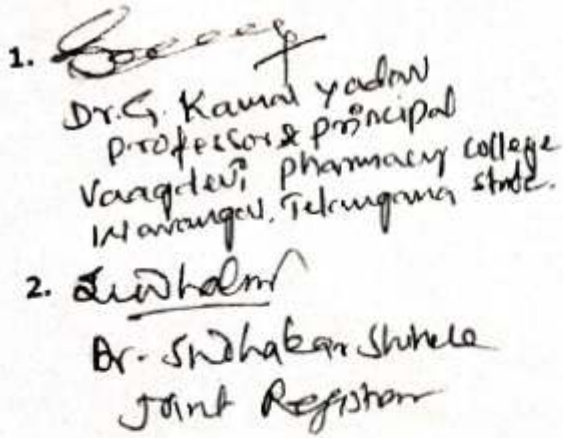 1.
Dr. G. Kamal Yadav
Professor & Principal
Vaagdevi Pharmacy college
Warangal, Telangana State.
2.
Dr. Sudhakar
Joint Registrar